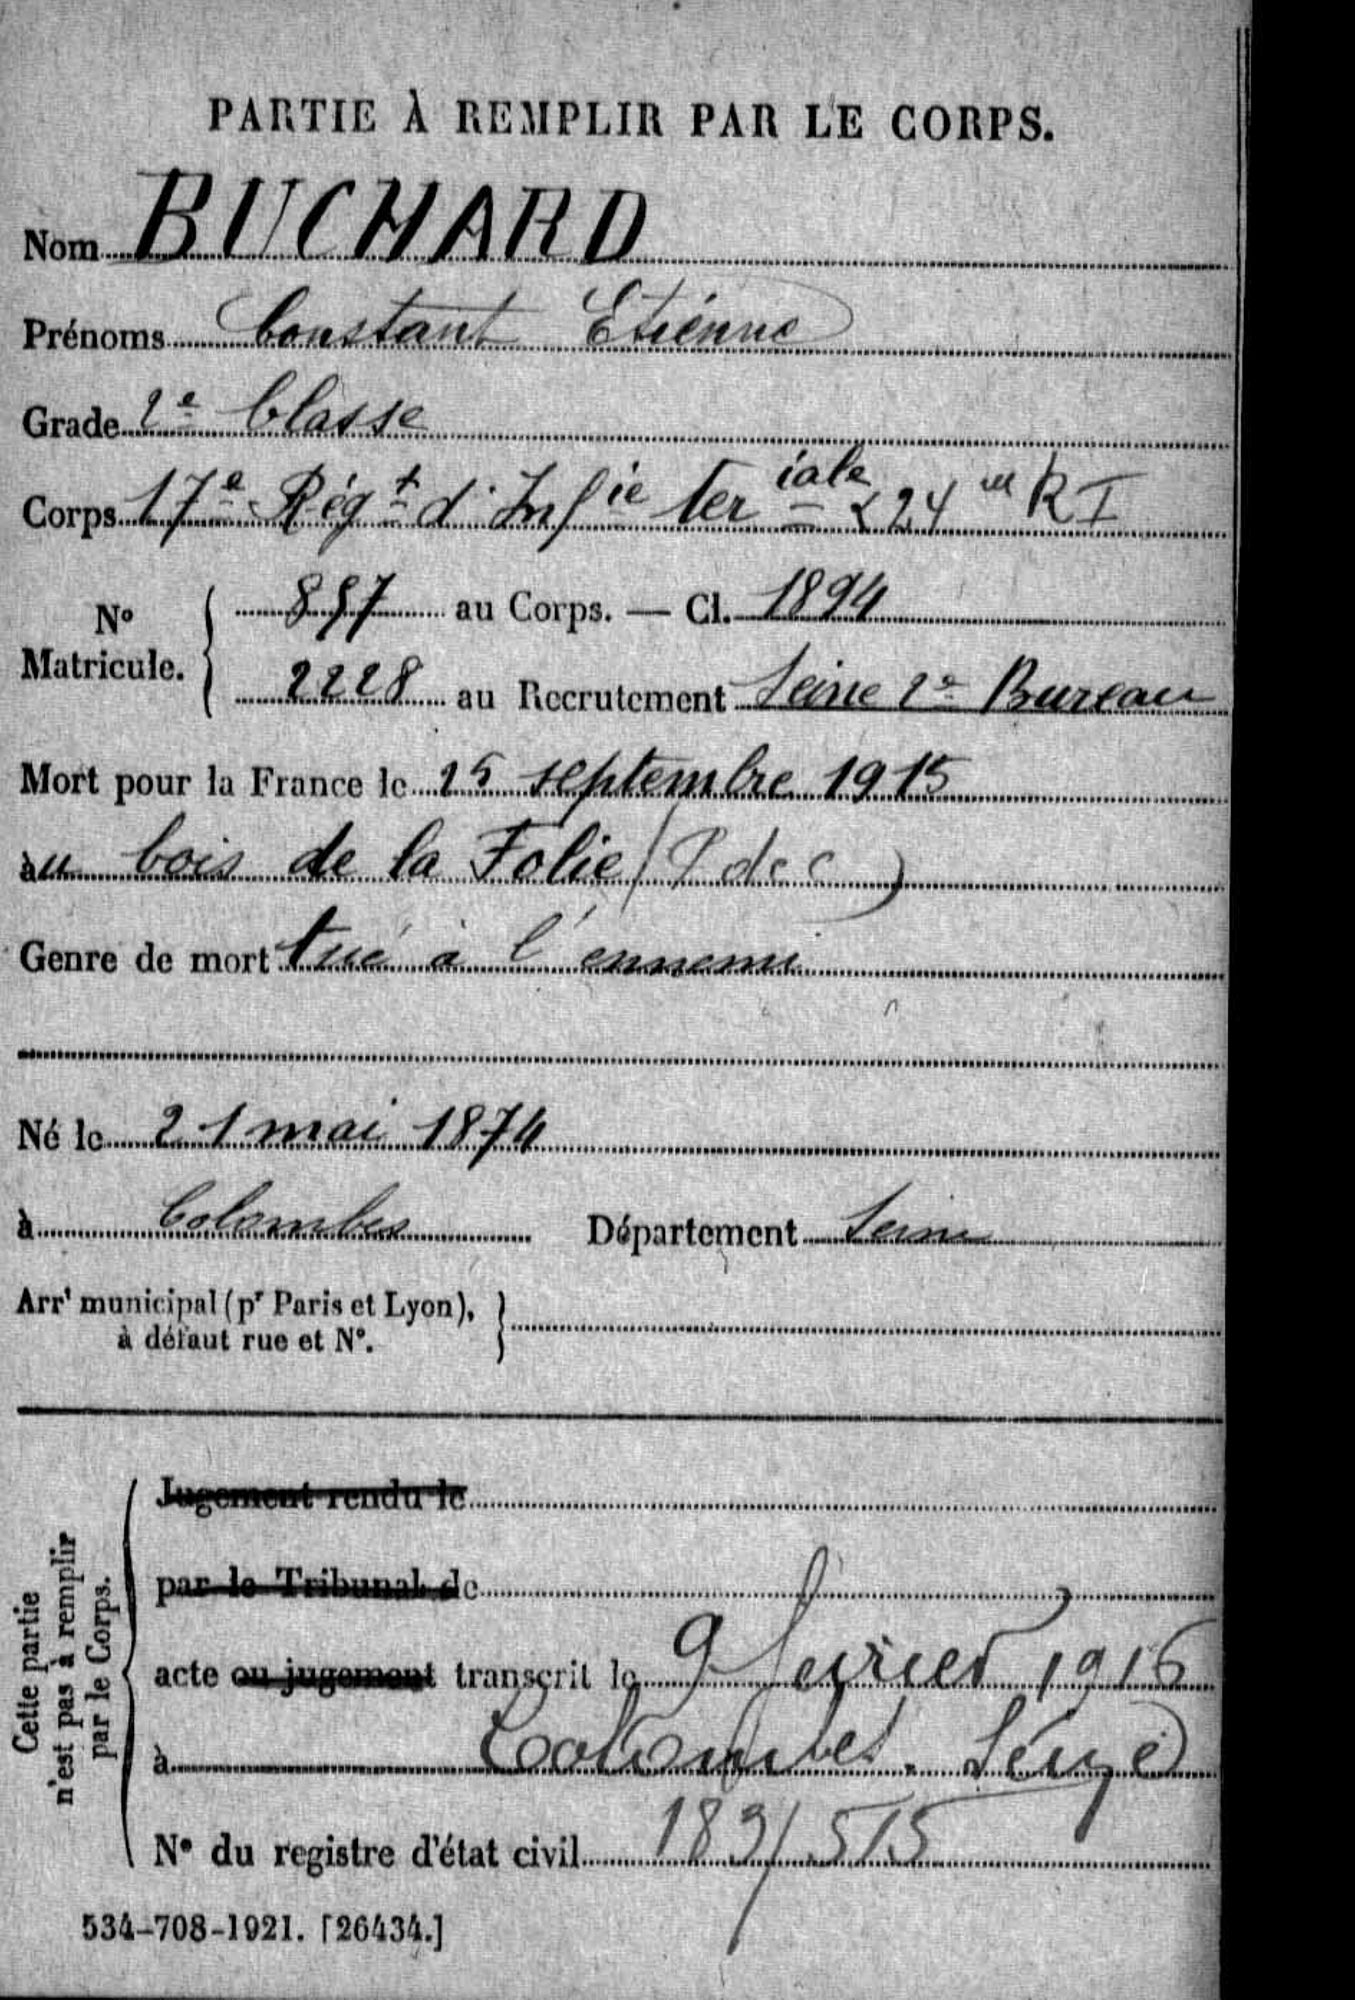 PARTIE À REMPLIR PAR LE CORPS.
Nom BUCHARD
Prénoms Constant Etienne
Grade 2e Classe
Corps 17e Régt d'Infie Ter iale 224 me RI
No Matricule. 857 au Corps. — Cl. 1894
2228 au Recrutement Seine 2e Bureau
Mort pour la France le 25 septembre 1915
au bois de la Folie (P de C)
Genre de mort tué à l'ennemi
Né le 21 mai 1874
à Colombes Département Seine
Arrt municipal (pr Paris et Lyon),
à défaut rue et N°.
Cette partie
n'est pas à remplir
par le Corps.
Jugement rendu le
par le Tribunal de
acte ou jugement transcrit le 9 fevrier 1916
à Colombes. Seine
N° du registre d'état civil 183/515
534-708-1921. [26434.]